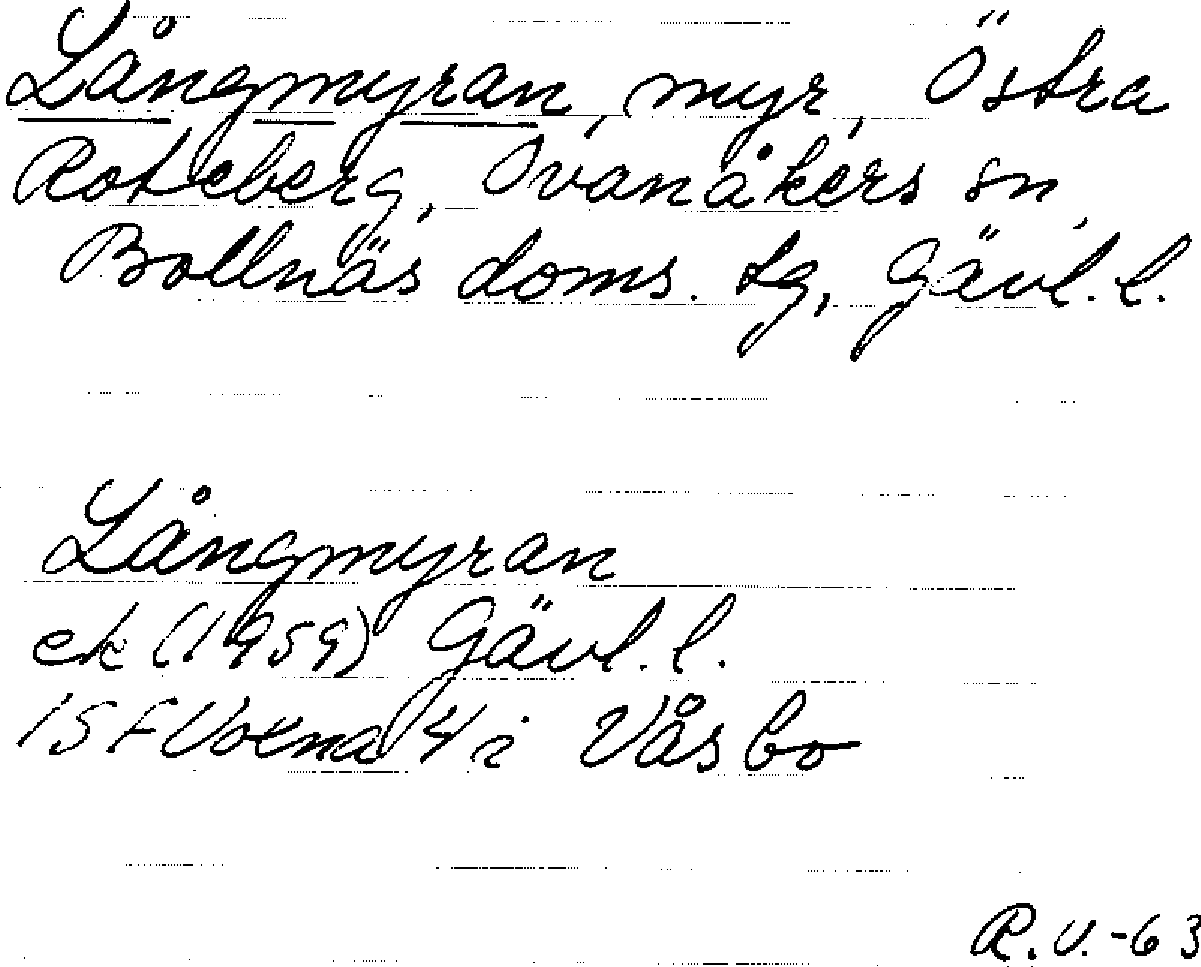 Långmyran, myr, Östra
Roteberg, Ovanåkers sn,
Bollnäs doms. tg, Gävl. l.
Långmyran
ek (1959) Gävl. l.
15F Voxna 4 i Våsbo
R.V.-63